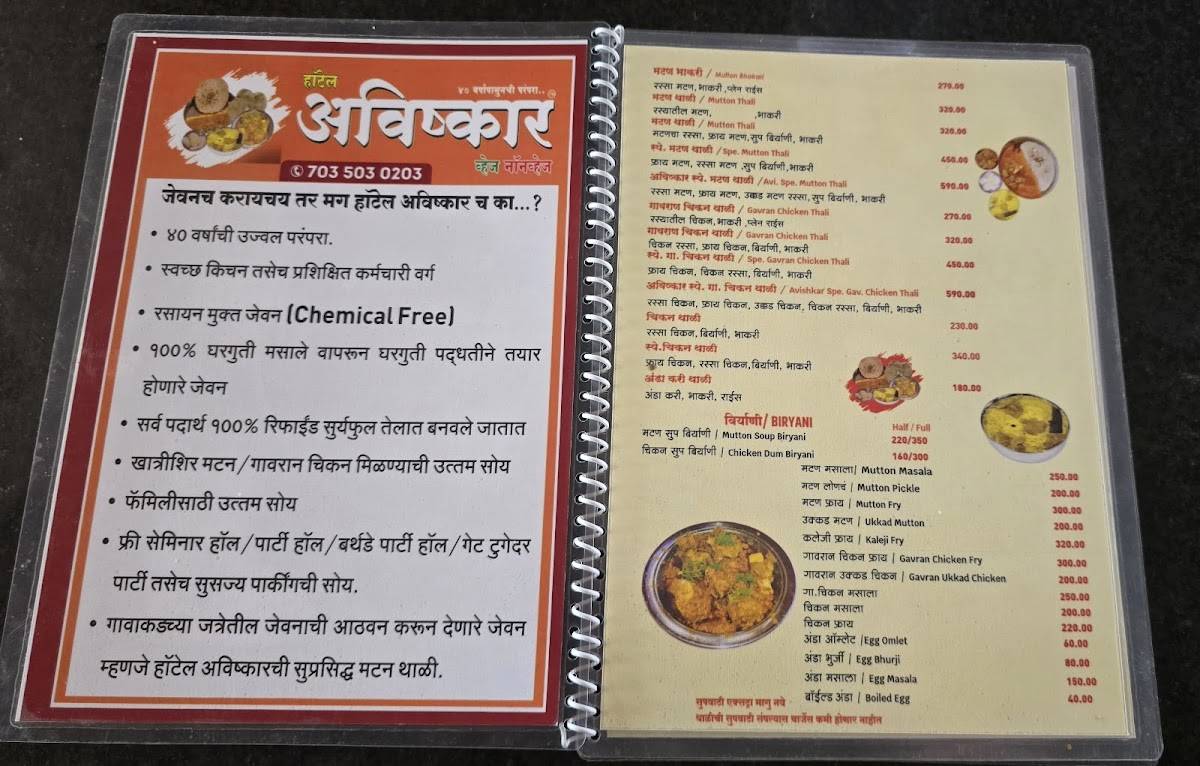 हॉटेल
४० वर्षांपासूनची परंपरा..
अविष्कार
व्हेज नॉनव्हेज
703 503 0203
जेवनच करायचय तर मग हॉटेल अविष्कार च का...?
• ४० वर्षांची उज्वल परंपरा.
• स्वच्छ किचन तसेच प्रशिक्षित कर्मचारी वर्ग
• रसायन मुक्त जेवन (Chemical Free)
• १००% घरगुती मसाले वापरून घरगुती पद्धतीने तयार
होणारे जेवन
• सर्व पदार्थ १००% रिफाईंड सुर्यफुल तेलात बनवले जातात
• खात्रीशिर मटन/गावरान चिकन मिळण्याची उत्तम सोय
• फॅमिलीसाठी उत्तम सोय
• फ्री सेमिनार हॉल/पार्टी हॉल/बर्थडे पार्टी हॉल/गेट टुगेदर
पार्टी तसेच सुसज्य पार्कींगची सोय.
• गावाकडच्या जत्रेतील जेवनाची आठवन करून देणारे जेवन
म्हणजे हॉटेल अविष्कारची सुप्रसिद्ध मटन थाळी.
मटण भाकरी / Mutton Bhakari
रस्सा मटण, भाकरी ,प्लेन राईस 270.00
मटण थाळी / Mutton Thali
रस्यातील मटण, ,भाकरी 320.00
मटण थाळी / Mutton Thali
मटणचा रस्सा, फ्राय मटण,सुप बिर्याणी, भाकरी 320.00
स्पे. मटण थाळी /Spe. Mutton Thali
फ्राय मटण, रस्सा मटण ,सुप बिर्याणी,भाकरी 450.00
अविष्कार स्पे. मटण थाळी /Avi. Spe. Mutton Thali
रस्सा मटण, फ्राय मटण, उक्कड मटण रस्सा,सुप बिर्याणी, भाकरी 590.00
गावराण चिकन थाळी / Gavran Chicken Thali
रस्यातील चिकन,भाकरी ,प्लेन राईस 270.00
गावराण चिकन थाळी / Gavran Chicken Thali
चिकन रस्सा, फ्राय चिकन,बिर्याणी, भाकरी 320.00
स्पे. गा. चिकन थाळी / Spe. Gavran Chicken Thali
फ्राय चिकन, चिकन रस्सा, बिर्याणी, भाकरी 450.00
अविष्कार स्पे. गा. चिकन थाळी / Avishkar Spe. Gav. Chicken Thali 590.00
रस्सा चिकन, फ्राय चिकन, उक्कड चिकन, चिकन रस्सा, बिर्याणी, भाकरी
चिकन थाळी 230.00
रस्सा चिकन,बिर्याणी, भाकरी
स्पे.चिकन थाळी 340.00
फ्राय चिकन, रस्सा चिकन,बिर्याणी, भाकरी
अंडा करी थाळी 180.00
अंडा करी, भाकरी, राईस
बिर्याणी/ BIRYANI Half / Full
मटण सुप बिर्याणी | Mutton Soup Biryani 220/350
चिकन सुप बिर्याणी | Chicken Dum Biryani 160/300
मटण मसाला| Mutton Masala 250.00
मटण लोणचं | Mutton Pickle 200.00
मटण फ्राय | Mutton Fry 300.00
उक्कड मटण | Ukkad Mutton 200.00
कलेजी फ्राय | Kaleji Fry 320.00
गावरान चिकन फ्राय | Gavran Chicken Fry 300.00
गावरान उक्कड चिकन | Gavran Ukkad Chicken 200.00
गा.चिकन मसाला 250.00
चिकन मसाला 200.00
चिकन फ्राय 220.00
अंडा ऑम्लेट |Egg Omlet 60.00
अंडा भुर्जी | Egg Bhurji 80.00
अंडा मसाला | Egg Masala 150.00
बॉईल्ड अंडा | Boiled Egg 40.00
सुपवाटी एक्सट्रा मागु नये
थाळीची सुपवाटी संपल्यास चार्जेस कमी होणार नाहीत